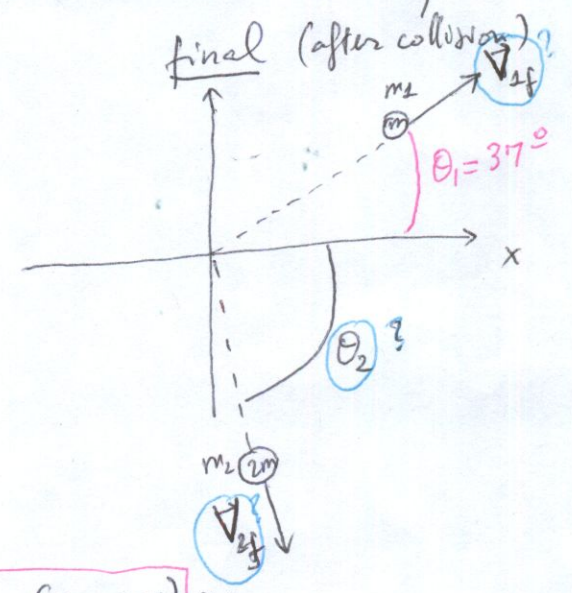 final (after collision)
V⃗1f ?
m1
m
θ1 = 37°
x
θ2 ?
m2 2m
V⃗2f ?